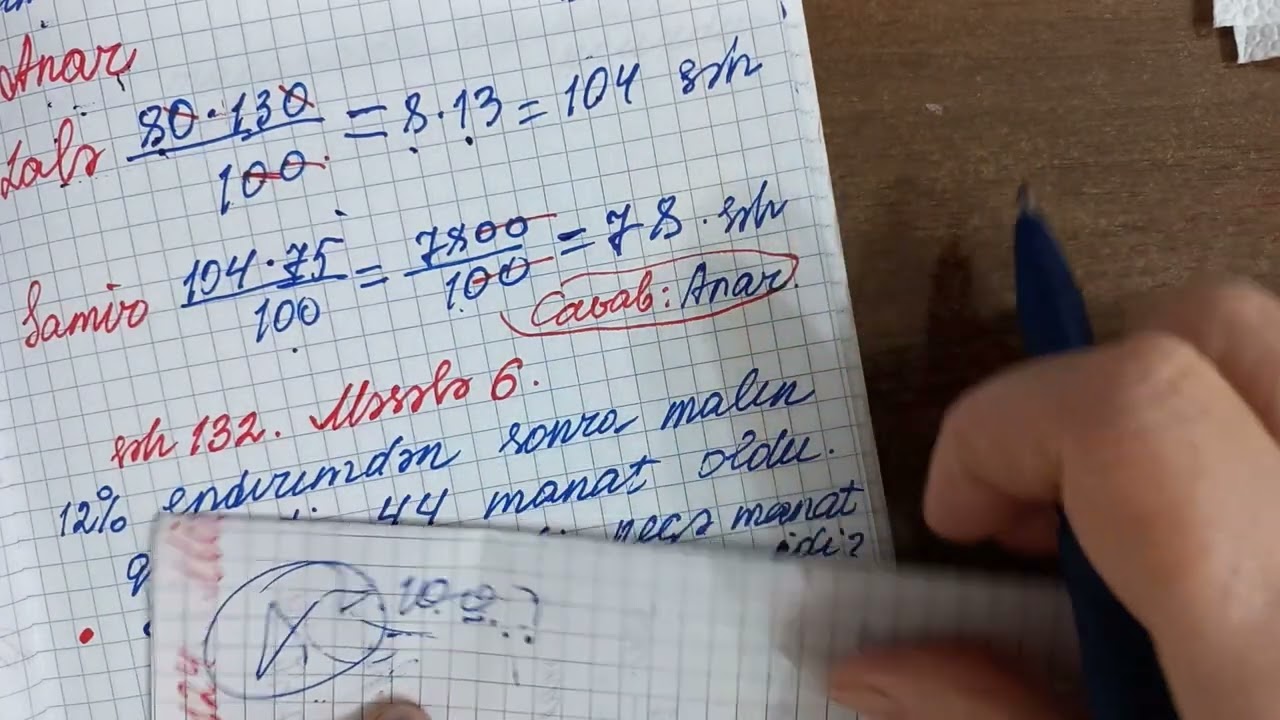 Anar
Lalə 80·130/100 = 8·13 = 104 səh
Samirə 104·75/100 = 7800/100 = 78 səh
Cavab: Anar.
səh 132. Məsələ 6.
12% endirimdən sonra malın
44 manat oldu.
neçə manat
idi?
100